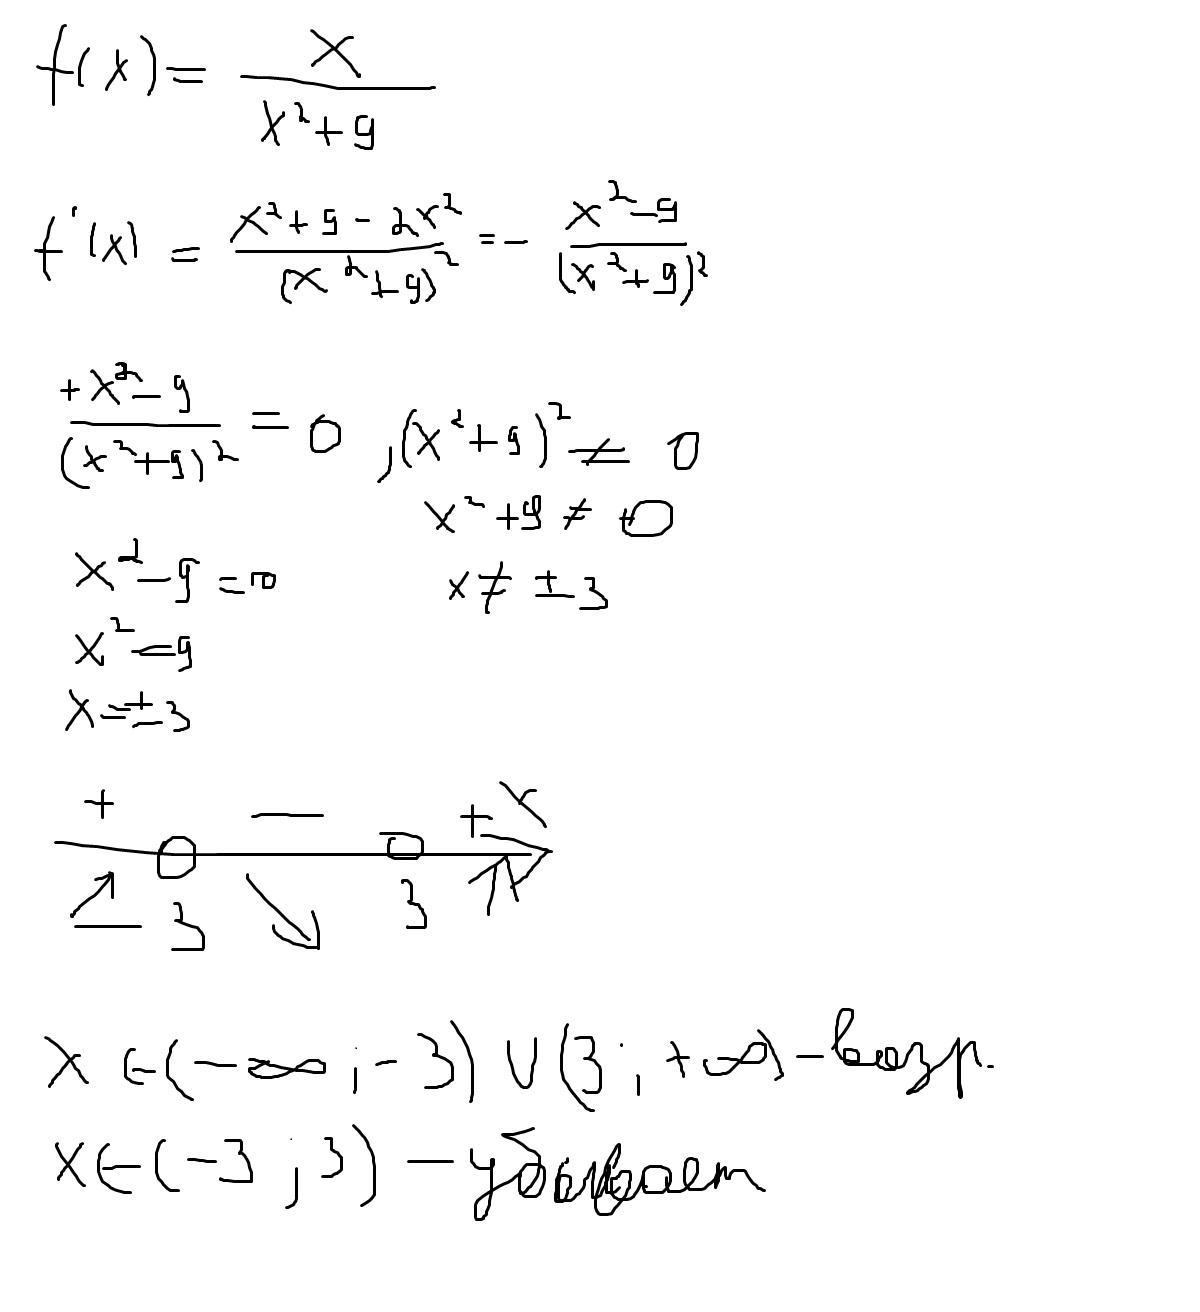 f(x) = x / (x² + 9)
f'(x) = (x² + 9 - 2x²) / (x² + 9)² = - (x² - 9) / (x² + 9)²
+ x² - 9 / (x² + 9)² = 0 , (x² + 9)² ≠ 0
x² + 9 ≠ 0
x² - 9 = 0 x ≠ ± 3
x² = 9
x = ± 3
+ — + x
3 3
x ∈ (-∞ ; -3) ∪ (3 ; +∞) - возр.
x ∈ (-3 ; 3) - убывает